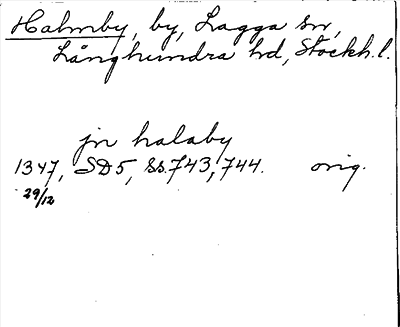 Halmby, by, Lagga sn,
Långhundra hd, Stockh.l.
jn halaby
1347, SD5, ss.743, 744. orig.
29/12